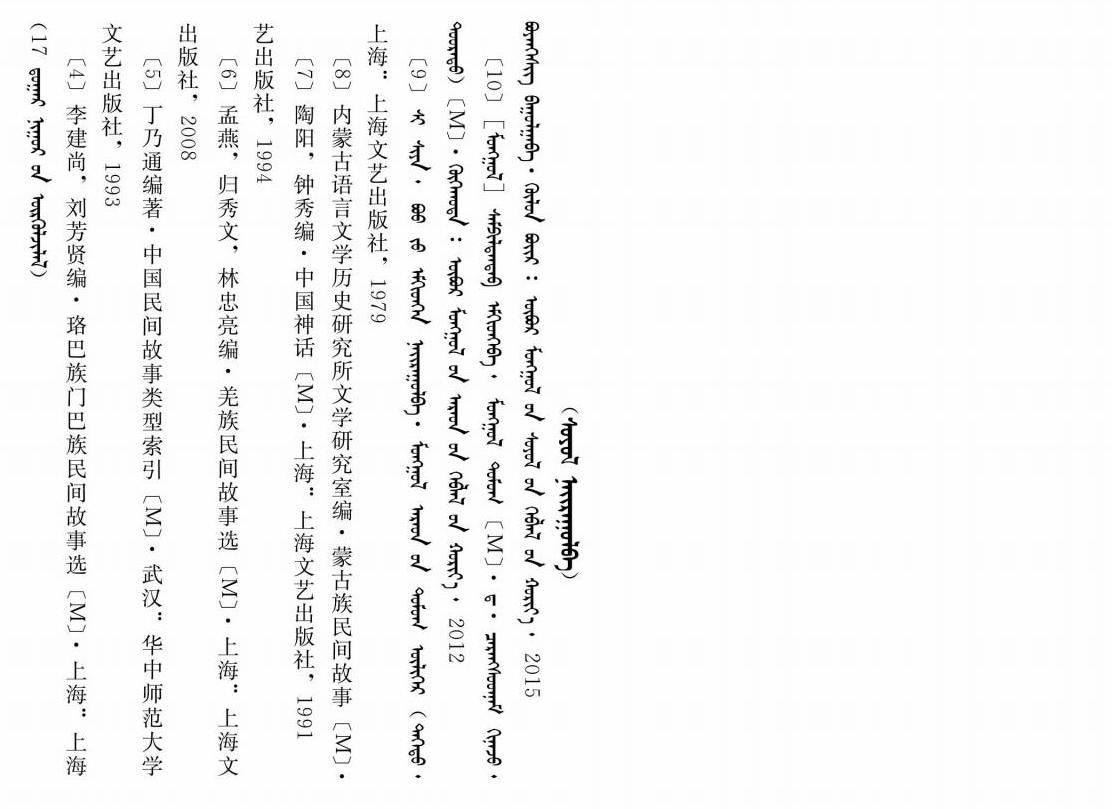 (17 ᠳᠤᠭᠠᠷ ᠨᠢᠭᠤᠷ ᠤᠨ ᠦᠷᠭᠦᠯᠵᠢᠯᠡᠯ)
〔4〕李建尚，刘芳贤编·珞巴族门巴族民间故事选〔M〕·上海：上海
文艺出版社，1993
〔5〕丁乃通编著·中国民间故事类型索引〔M〕·武汉：华中师范大学
出版社，2008
〔6〕孟燕，归秀文，林忠亮编·羌族民间故事选〔M〕·上海：上海文
艺出版社，1994
〔7〕陶阳，钟秀编·中国神话〔M〕·上海：上海文艺出版社，1991
〔8〕内蒙古语言文学历史研究所文学研究室编·蒙古族民间故事〔M〕·
上海：上海文艺出版社，1979
〔9〕 ᠨᠠᠶᠢᠷᠠᠭᠤᠯᠪᠠ᠂ ᠮᠣᠩᠭᠣᠯ ᠠᠷᠠᠳ ᠤᠨ ᠳᠣᠮᠣᠭ ᠦᠯᠢᠭᠡᠷ (
〔M〕· ᠬᠥᠬᠡᠬᠣᠲᠠ : ᠥᠪᠥᠷ ᠮᠣᠩᠭᠣᠯ ᠤᠨ ᠠᠷᠠᠳ ᠤᠨ ᠬᠡᠪᠯᠡᠯ ᠦᠨ ᠬᠣᠷᠢᠶ᠎ᠠ᠂ 2012
〔10〕[ᠮᠣᠩᠭᠣᠯ] ᠮᠣᠩᠭᠣᠯ ᠳᠣᠮᠣᠭ 〔M〕·
ᠪᠠᠭᠤᠯᠭᠠᠪᠠ᠂ : ᠥᠪᠥᠷ ᠮᠣᠩᠭᠣᠯ ᠤᠨ ᠰᠣᠶᠣᠯ ᠤᠨ ᠬᠡᠪᠯᠡᠯ ᠦᠨ ᠬᠣᠷᠢᠶ᠎ᠠ᠂ 2015
(ᠰᠣᠶᠣᠯ ᠨᠠᠶᠢᠷᠠᠭᠤᠯᠪᠠ)